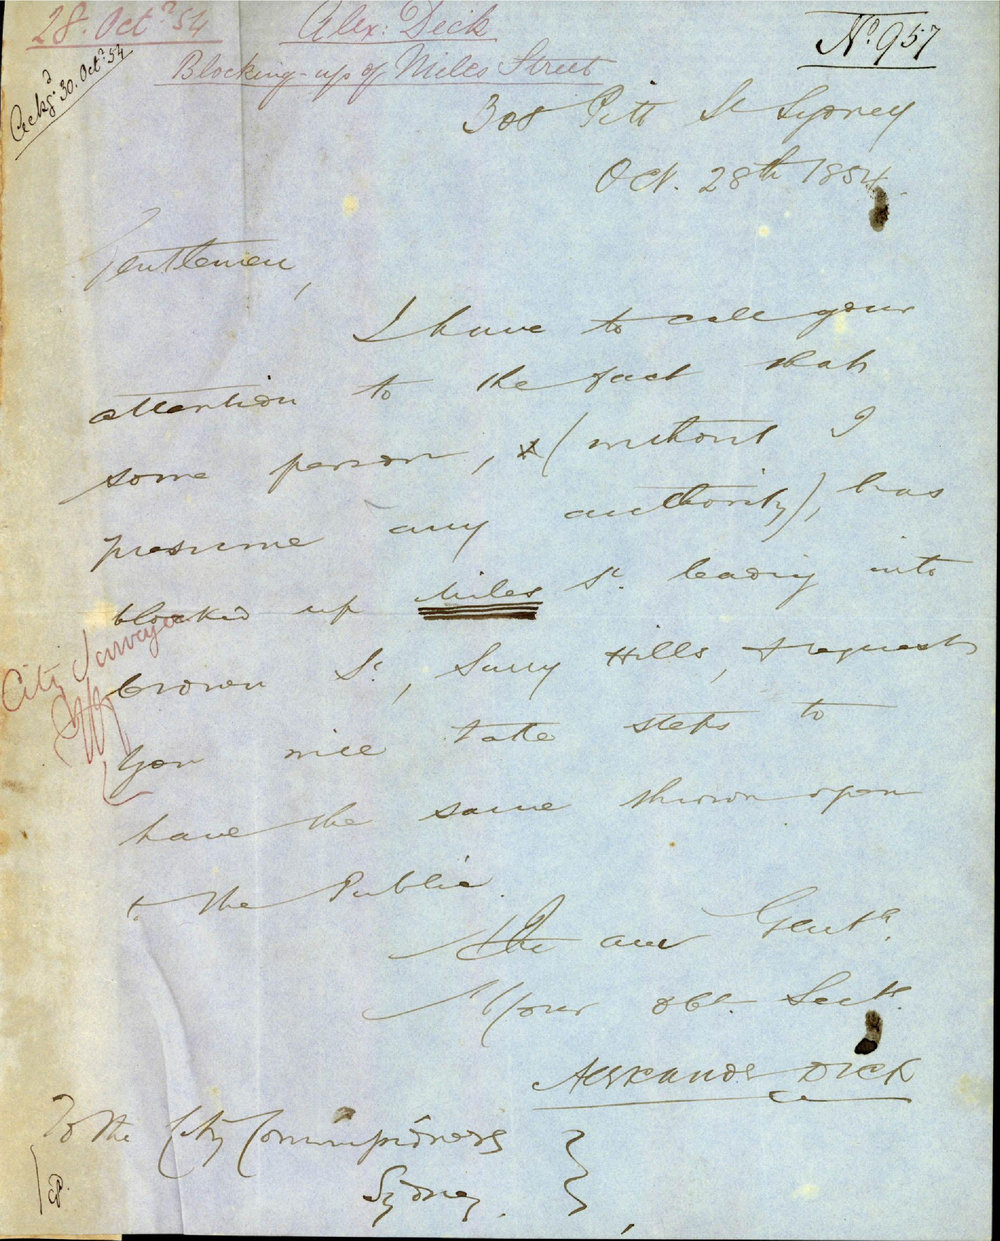 28. Octr. 54
Alex: Dick
No. 957
Blocking-up of Miles Street
Ackgd. 30. Octr. 54
308 Pitt St Sydney
Oct. 28th 1854.
Gentlemen,
I have to call your
attention to the fact that
some person, (without I
presume any authority), has
blocked up Miles St. leading into
City Surveyor
Crown St., Surry Hills, & request
you will take steps to
have the same thrown open
to the Public.
I am Gentn.
Your obt. Servt.
Alexander Dick
To the City Commissioners
Sydney.